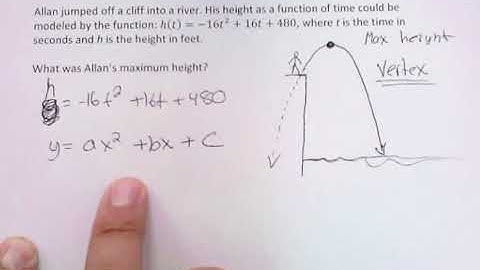 Allan jumped off a cliff into a river. His height as a function of time could be
modeled by the function: h(t) = −16t² + 16t + 480, where t is the time in
seconds and h is the height in feet.
What was Allan's maximum height?
h = -16t² + 16t + 480
y = ax² + bx + c
Max height
Vertex